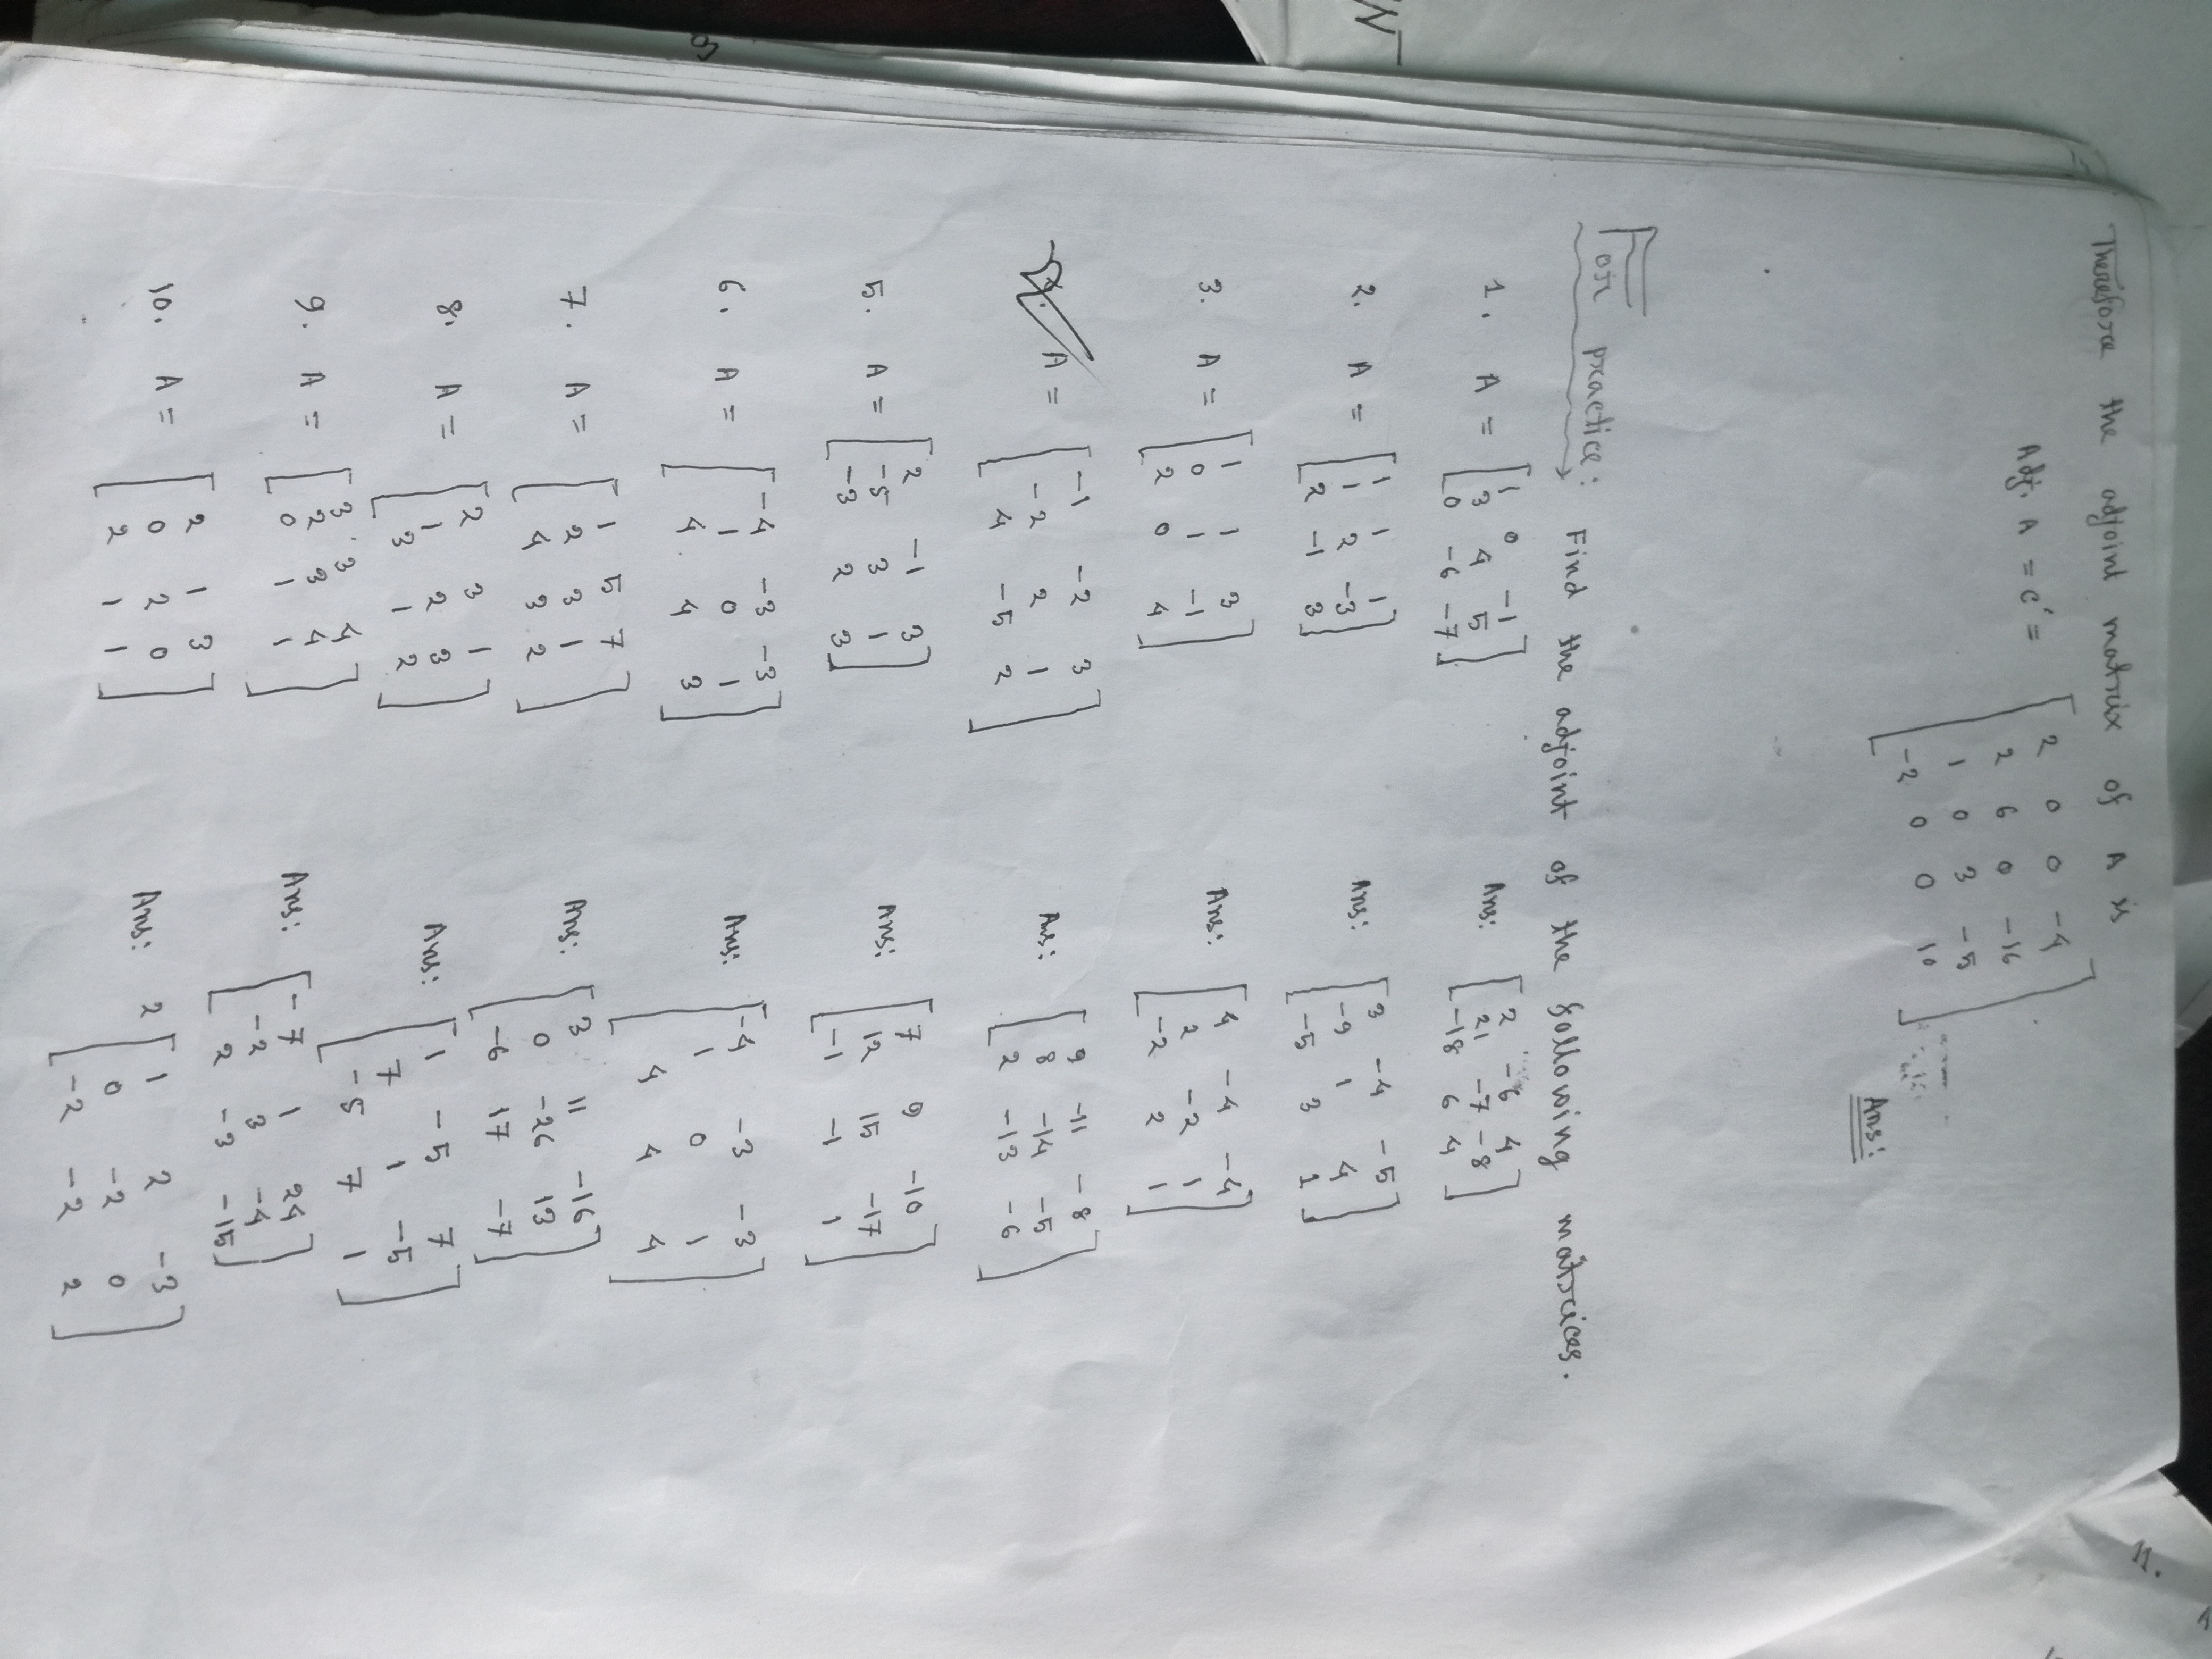 Therefore the adjoint matrix of A is
Adj. A = c' = [2 0 0 -4
2 6 0 -16
1 0 3 -5
-2 0 0 10]
Ans:
For practice: Find the adjoint of the following matrices.
1. A = [1 0 -1
3 4 5
0 -6 -7]
Ans: [2 -6 4
21 -7 -8
-18 6 4]
2. A = [1 1 1
1 2 -3
2 -1 3]
Ans: [3 -4 -5
-9 1 4
-5 3 1]
3. A = [1 1 3
0 1 -1
2 0 4]
Ans: [4 -4 -4
2 -2 1
-2 2 1]
A = [-1 -2 3
-2 2 1
4 -5 2]
Ans: [9 -11 -8
8 -14 -5
2 -13 -6]
5. A = [2 -1 3
-5 3 1
-3 2 3]
Ans: [7 9 -10
12 15 -17
-1 -1 1]
6. A = [-4 -3 -3
1 0 1
4 4 3]
Ans: [-4 -3 -3
1 0 1
4 4 4]
7. A = [1 5 7
2 3 1
4 3 2]
Ans: [3 11 -16
0 -26 13
-6 17 -7]
8. A = [2 3 1
1 2 3
3 1 2]
Ans: [1 -5 7
7 1 -5
-5 7 1]
9. A = [3 3 4
2 3 4
0 1 1]
Ans: [-7 1 24
-2 3 -4
2 -3 -15]
10. A = [2 1 3
0 2 0
2 1 1]
Ans: 2 [1 2 -3
0 -2 0
-2 -2 2]
11.
N